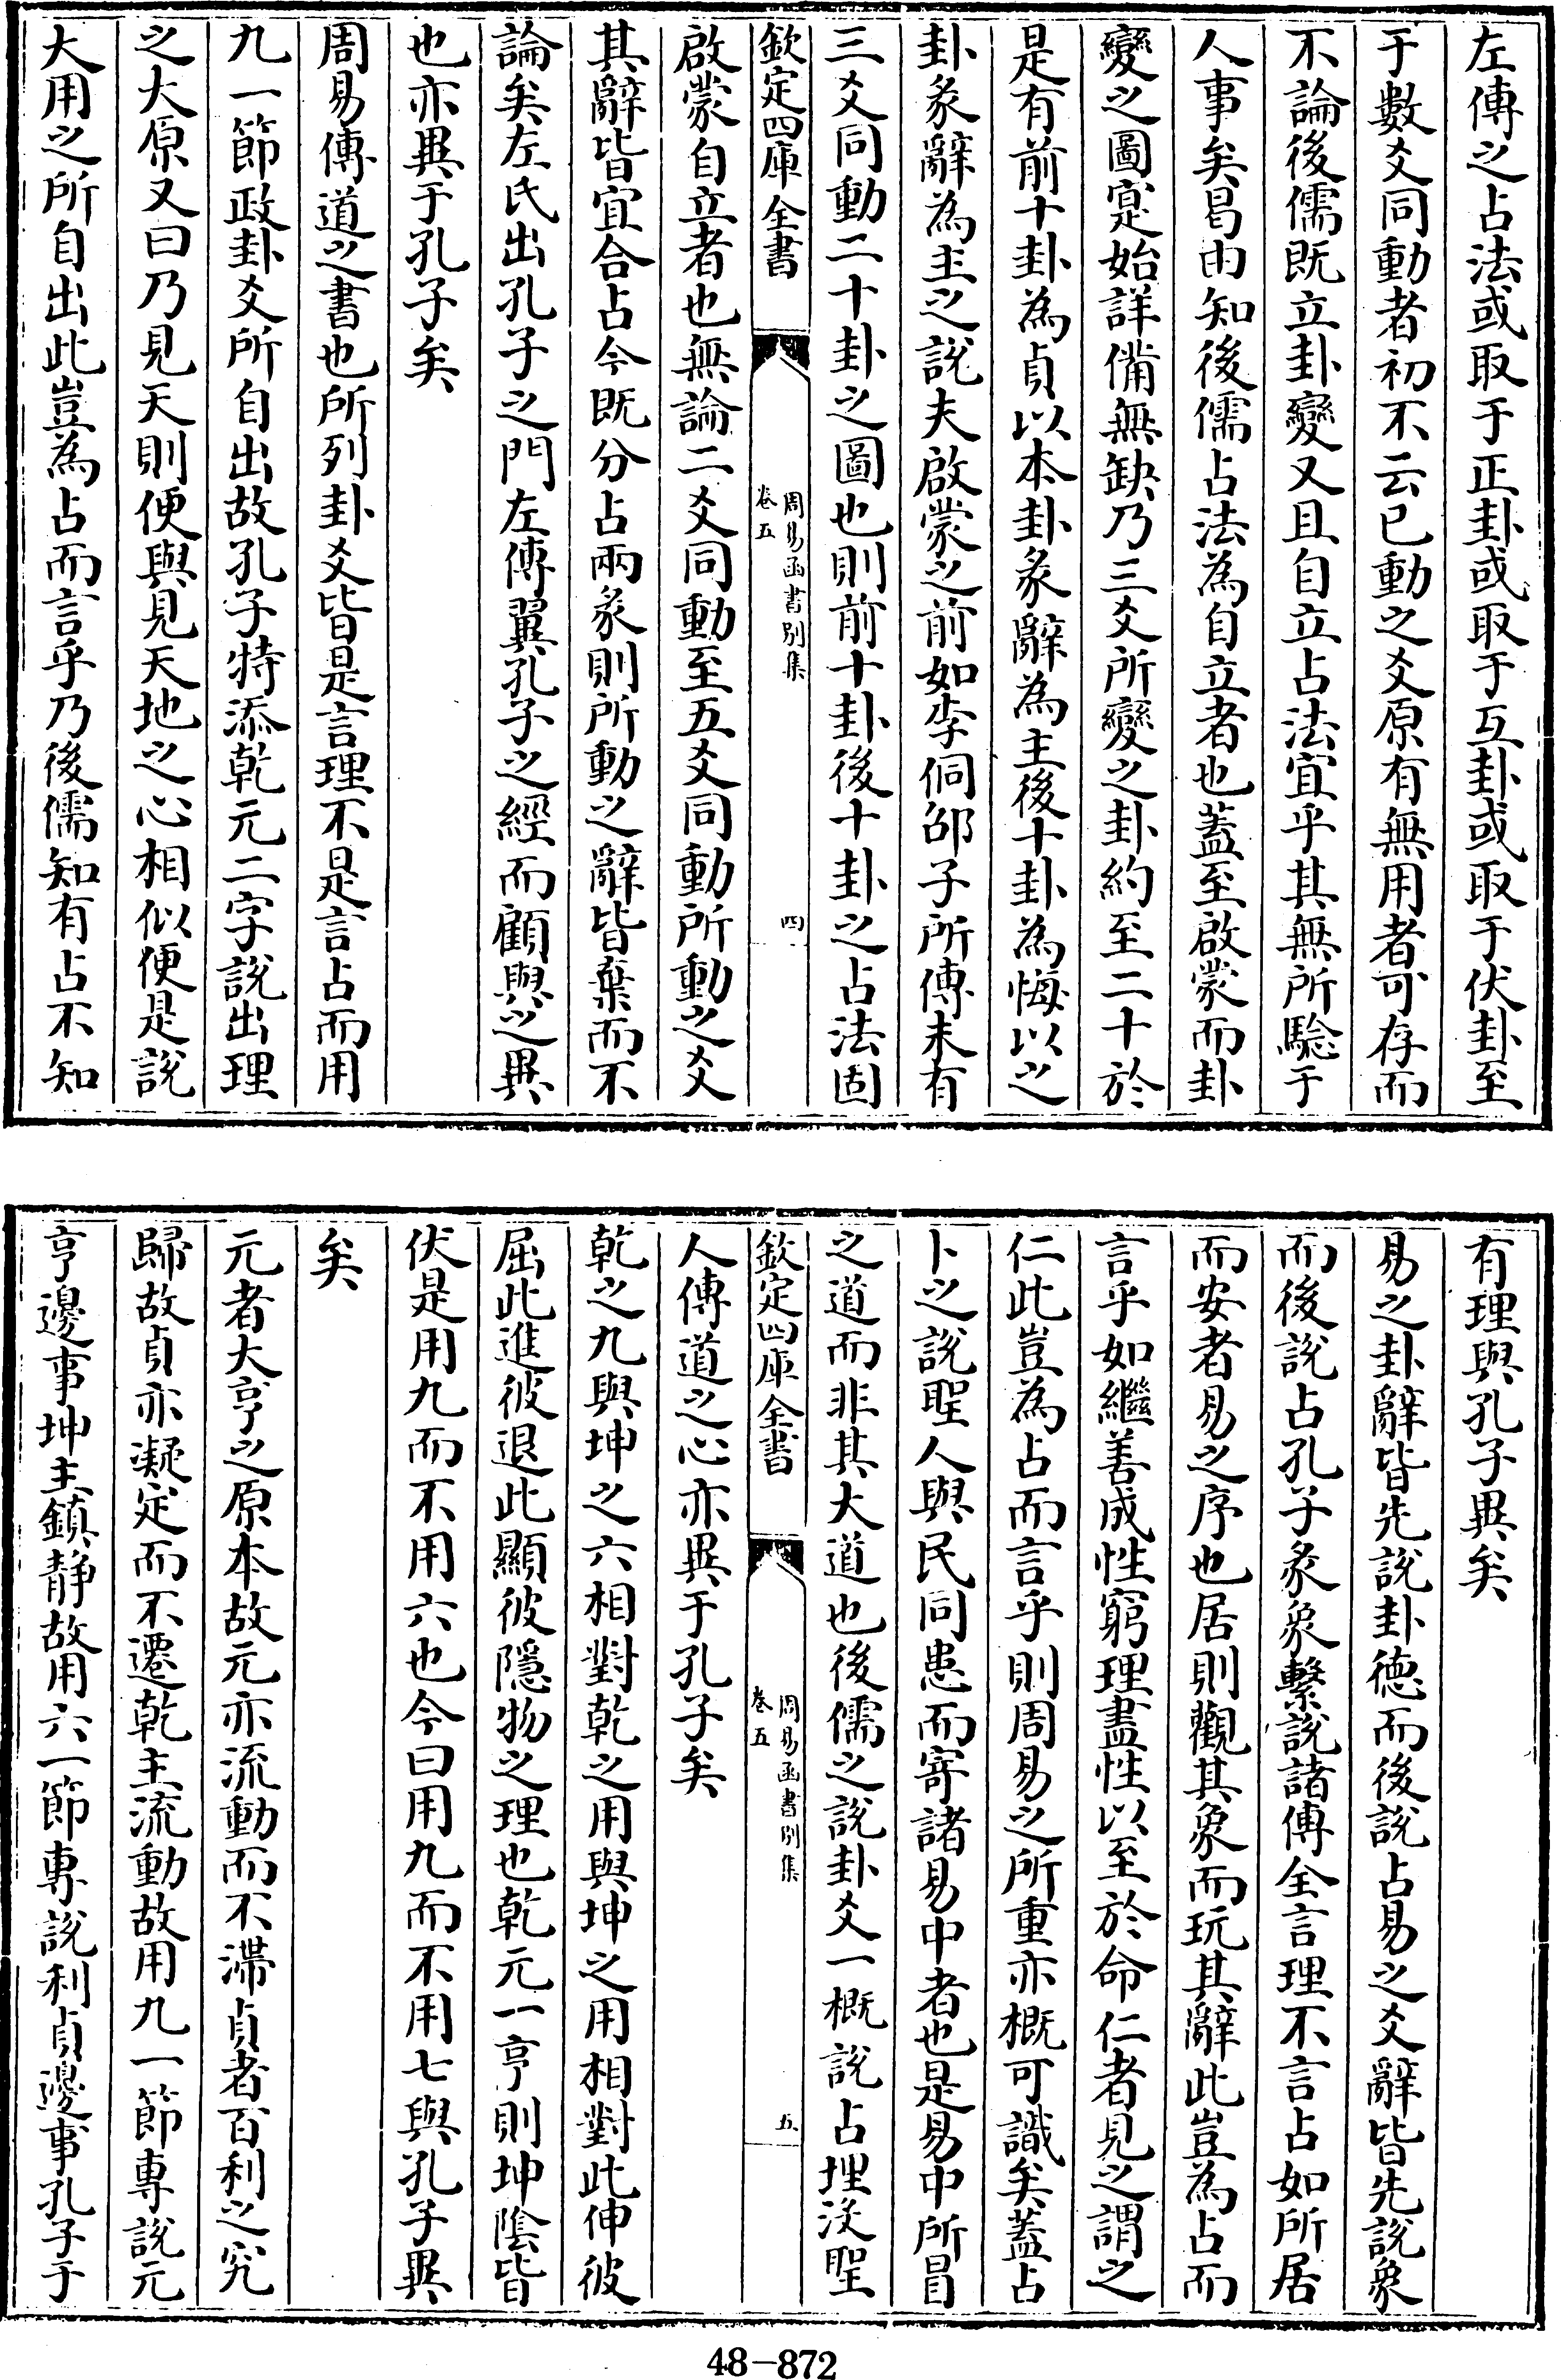 左傳之占法或取于正卦或取于互卦或取于伏卦至
于數爻同動者初不云已動之爻原有無用者可存而
不論後儒既立卦變又且自立占法宜乎其無所驗于
人事矣曷由知後儒占法為自立者也蓋至啟蒙而卦
變之圖寔始詳備無缺乃三爻所變之卦約至二十於
是有前十卦為貞以本卦彖辭為主後十卦為悔以之
卦彖辭為主之說夫啟蒙之前如李侗邵子所傳未有
三爻同動二十卦之圖也則前十卦後十卦之占法固
欽定四庫全書
周易函書別集
卷五
四
啟蒙自立者也無論二爻同動至五爻同動所動之爻
其辭皆宜合占今既分占兩彖則所動之辭皆棄而不
論矣左氏出孔子之門左傳翼孔子之經而顧與之異
也亦異于孔子矣
周易傳道之書也所列卦爻皆是言理不是言占而用
九一節政卦爻所自出故孔子特添乾元二字說出理
之大原又曰乃見天則便與見天地之心相似便是說
大用之所自出此豈為占而言乎乃後儒知有占不知
有理與孔子異矣
易之卦辭皆先說卦德而後說占易之爻辭皆先說象
而後說占孔子彖象繫說諸傳全言理不言占如所居
而安者易之序也居則觀其象而玩其辭此豈為占而
言乎如繼善成性窮理盡性以至於命仁者見之謂之
仁此豈為占而言乎則周易之所重亦概可識矣蓋占
卜之說聖人與民同患而寄諸易中者也是易中所冒
之道而非其大道也後儒之說卦爻一概說占埋沒聖
欽定四庫全書
周易函書別集
卷五
五
人傳道之心亦異于孔子矣
乾之九與坤之六相對乾之用與坤之用相對此伸彼
屈此進彼退此顯彼隱物之理也乾元一亨則坤陰皆
伏是用九而不用六也今曰用九而不用七與孔子異
矣
元者大亨之原本故元亦流動而不滯貞者百利之究
歸故貞亦凝定而不遷乾主流動故用九一節專說元
亨邊事坤主鎮靜故用六一節專說利貞邊事孔子于
48-872